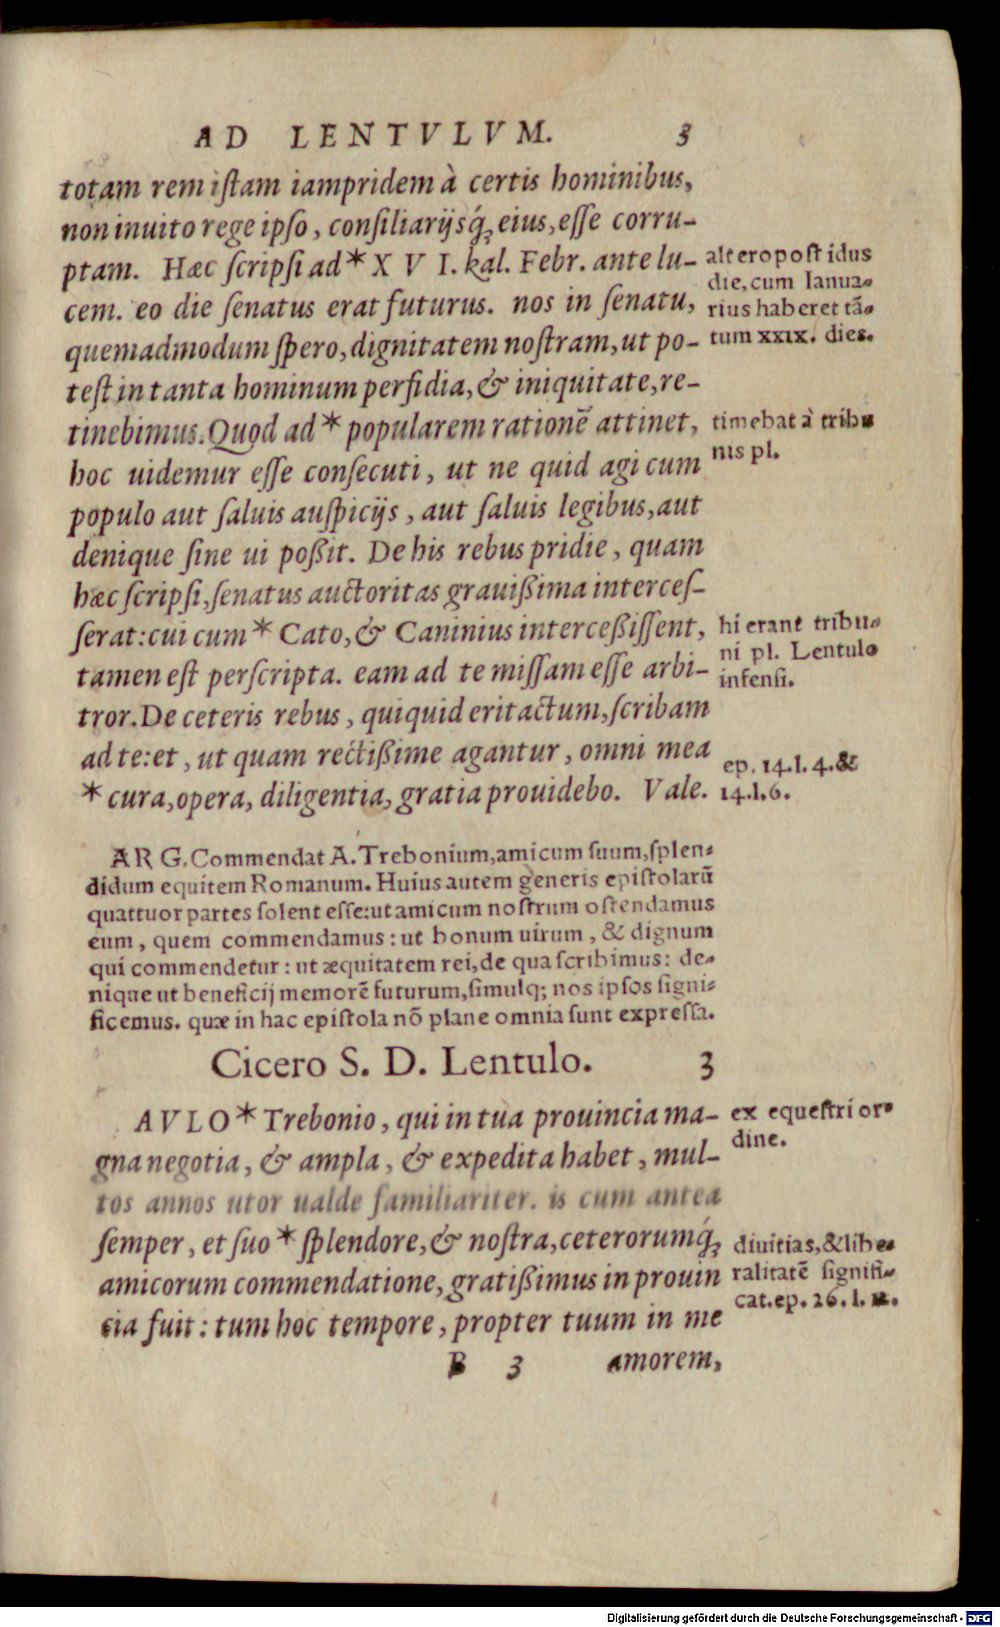 AD LENTVLVM. 3
totam rem istam iampridem à certis hominibus,
non inuito rege ipso, consiliarijsq́; eius, esse corru-
ptam. Hæc scripsi ad * XVI. kal. Febr. ante lu-
cem. eo die senatus erat futurus. nos in senatu,
quemadmodum spero, dignitatem nostram, ut po-
test in tanta hominum perfidia, & iniquitate, re-
tinebimus. Quod ad * popularem rationē attinet,
hoc uidemur esse consecuti, ut ne quid agi cum
populo aut saluis auspicijs, aut saluis legibus, aut
denique sine ui poßit. De his rebus pridie, quam
hæc scripsi, senatus auctoritas grauißima interces-
serat: cui cum * Cato, & Caninius interceßissent,
tamen est perscripta. eam ad te missam esse arbi-
tror. De ceteris rebus, quiquid erit actum, scribam
ad te: et, ut quam rectißime agantur, omni mea
* cura, opera, diligentia, gratia prouidebo. Vale.
altero post idus
die, cum Ianua-
rius haberet tā-
tum XXIX. dies.
timebat à tribu
nis pl.
hi erant tribu-
ni pl. Lentulo
infensi.
ep. 14. l. 4. &
14. l. 6.
ARG. Commendat A. Trebonium, amicum suum, splen-
didum equitem Romanum. Huius autem generis epistolarū
quattuor partes solent esse: ut amicum nostrum ostendamus
eum, quem commendamus: ut bonum uirum, & dignum
qui commendetur: ut æquitatem rei, de qua scribimus: de-
nique ut beneficij memorē futurum, simulq; nos ipsos signi-
ficemus. quæ in hac epistola nō plane omnia sunt expressa.
Cicero S. D. Lentulo. 3
AVLO * Trebonio, qui in tua prouincia ma-
gna negotia, & ampla, & expedita habet, mul-
tos annos utor ualde familiariter. is cum antea
semper, et suo * splendore, & nostra, ceterorumq́;
amicorum commendatione, gratißimus in prouin
cia fuit: tum hoc tempore, propter tuum in me
ex equestri or-
dine.
diuitias, & libe-
ralitatē signifi-
cat. ep. 26. l. 12.
B 3 amorem,
Digitalisierung gefördert durch die Deutsche Forschungsgemeinschaft - DFG